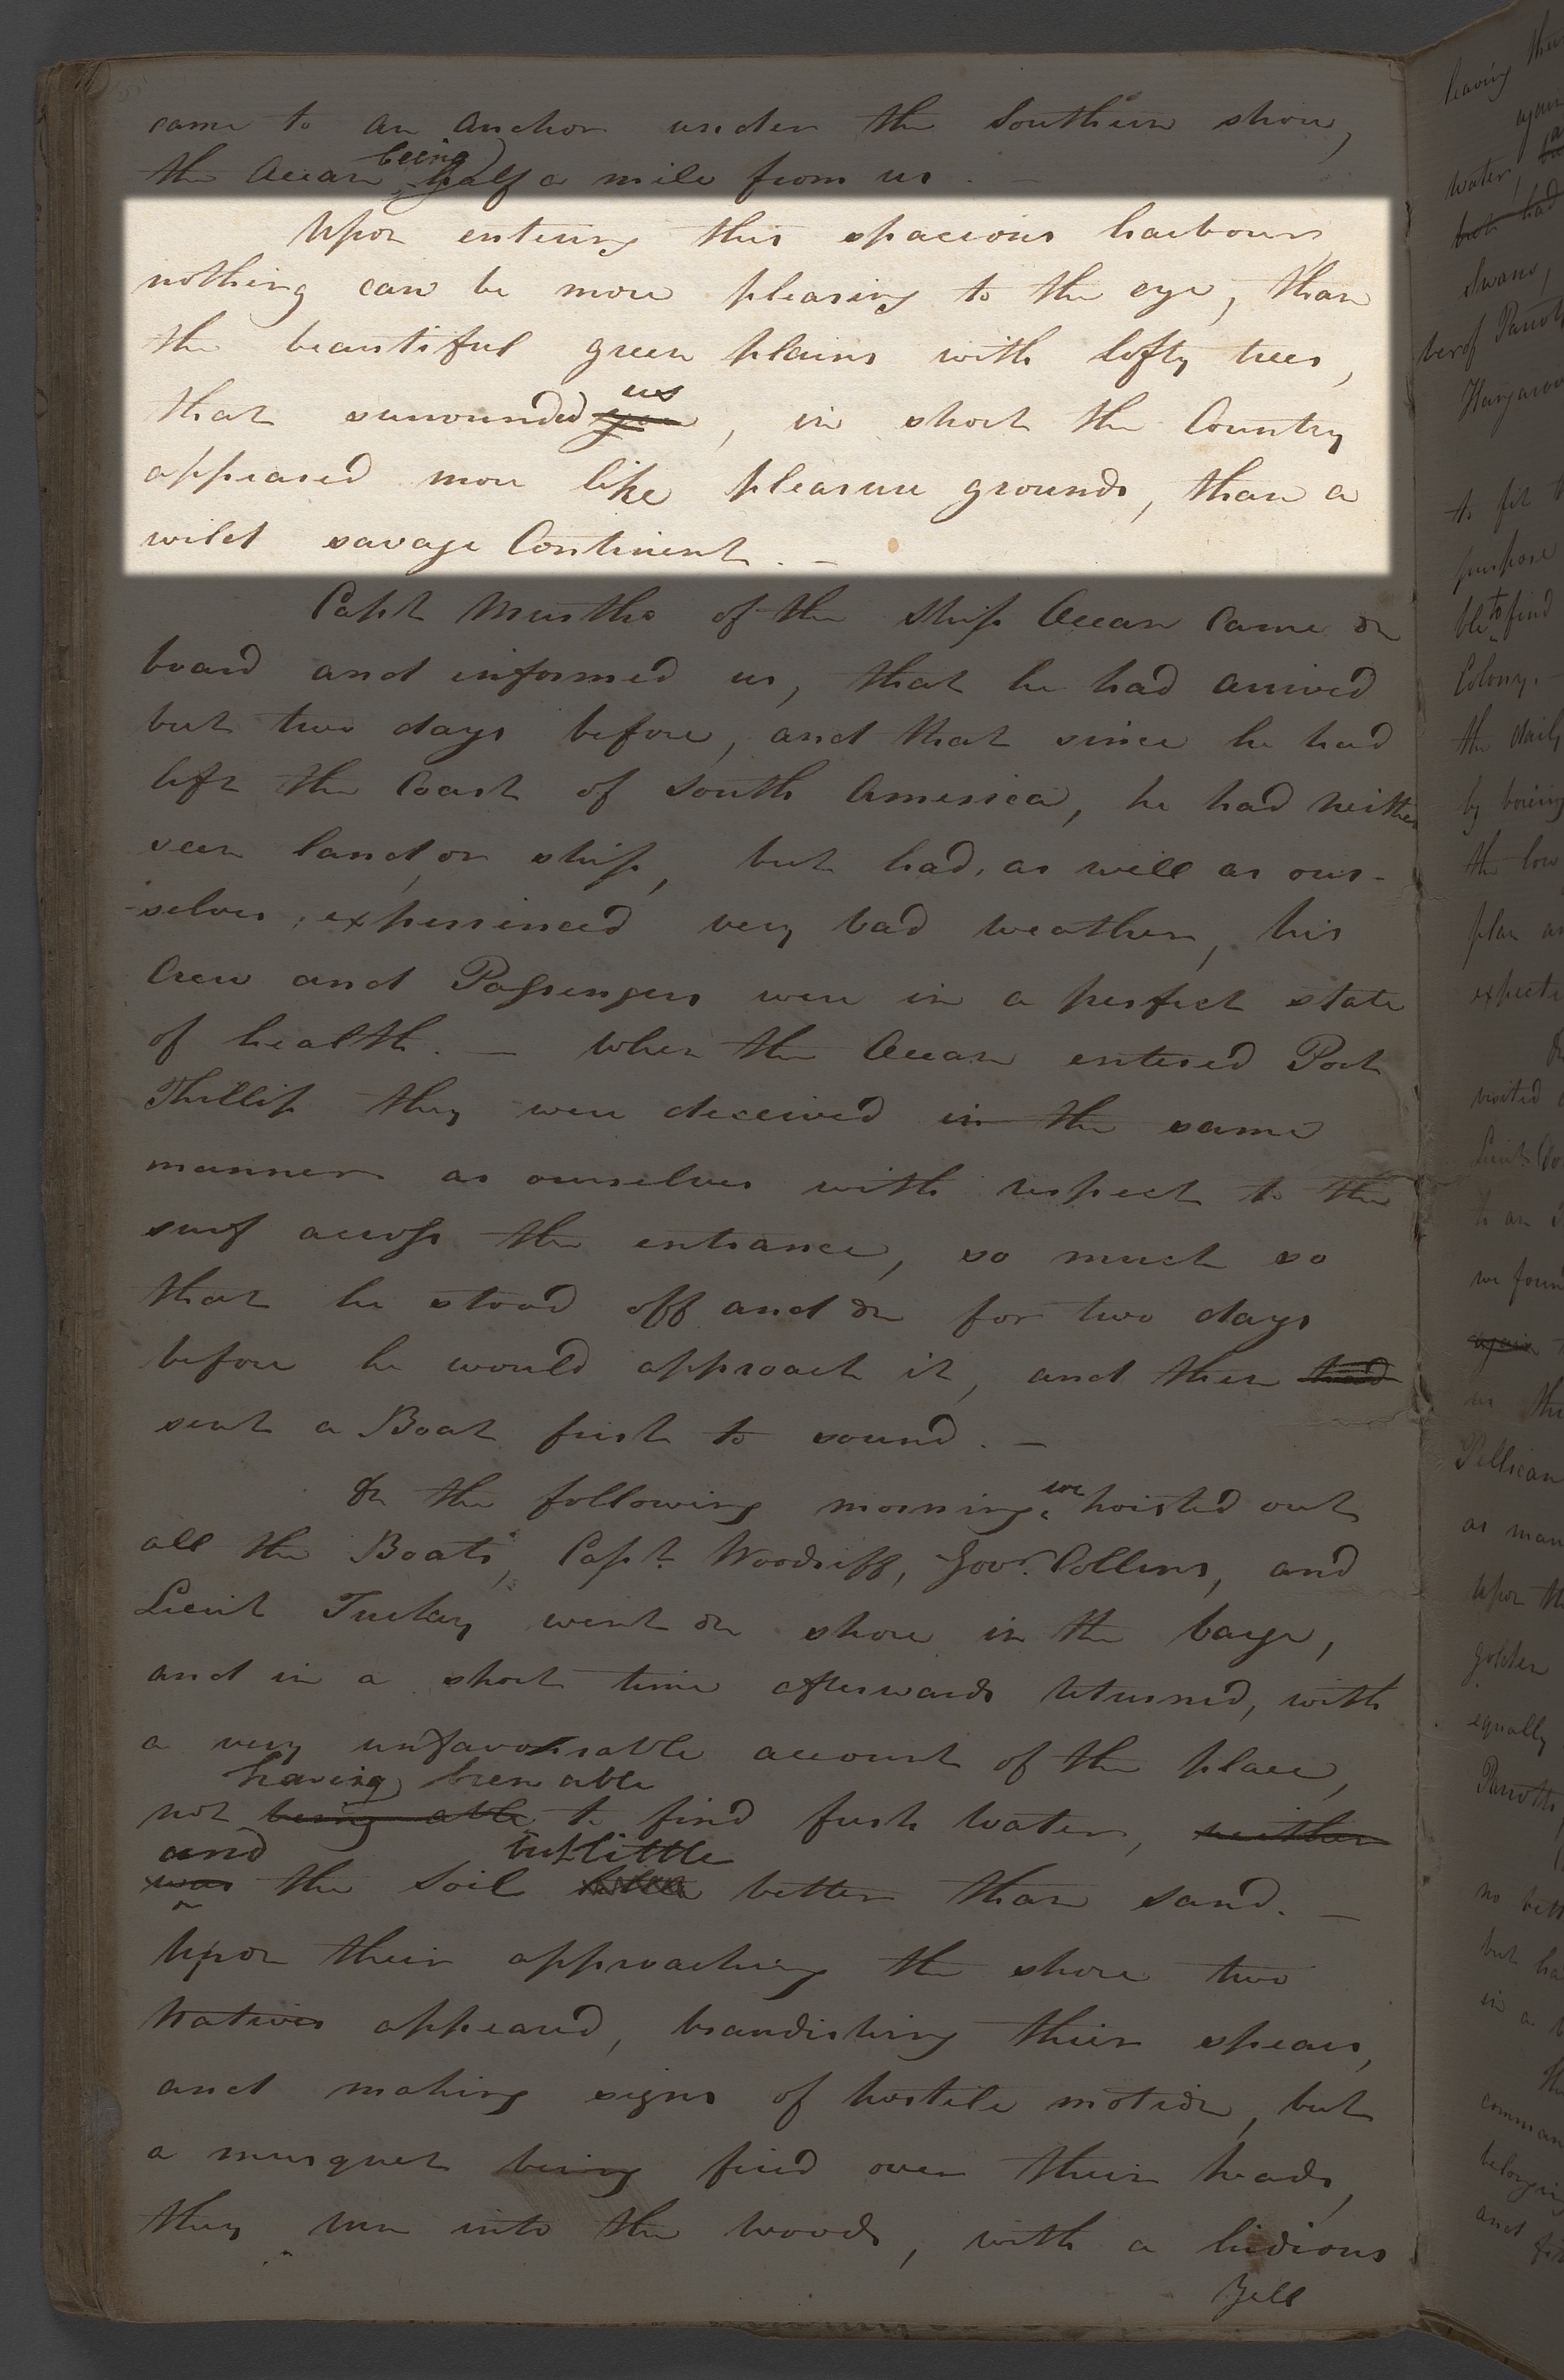 came to an anchor under the Southern shore,
being
the Ocean half a mile from us. —
Upon entering this spacious harbour
nothing can be more pleasing to the eye, than
the beautiful green plains with lofty trees,
us
that surrounded you, in short the Country
appeared more like pleasure grounds, than a
wild savage Continent. —
Capt Murtho of the ship Ocean came on
board and informed us, that he had arrived
but two days before, and that since he had
left the Coast of South America, he had neither
seen land or ship, but had, as well as our-
-selves, experienced very bad weather, his
Crew and Passengers were in a perfect state
of health. — When the Ocean entered Port
Phillip they were deceived in the same
manner as ourselves with respect to the
surf across the entrance, so much so
that he stood off and on for two days
before he would approach it, and then had
sent a Boat first to sound. —
we
On the following morning hoisted out
all the Boats, Capt. Woodriff, Govr. Collins, and
Lieut Tuckey went on shore in the barge,
and in a short time afterwards returned, with
a very unfavourable account of the place,
having been able
not being able to find fresh water, neither
and but little
was the soil better than sand. —
Upon their approaching the shore two
natives appeared, brandishing their spears,
and making signs of hostile motion, but
a musquet being fired over their heads,
they run into the woods, with a hidious
Yell
leaving
water,
but had
swans,
Kangaroo
to fit
purpose
to
ble find
Colony. —
the daily
by boring
the low
plan
expect
visited
Lieut
we found
again
Pellican
as man
upon th
golden
equally
Parrots
no bett
but ha
in a
comman
belonging
and